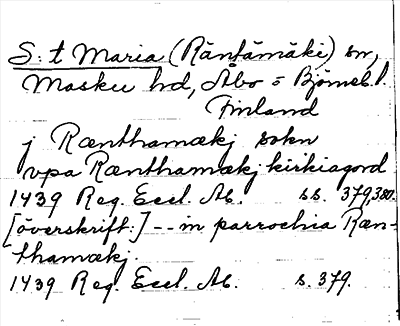 S:t Maria (Räntämäki) sn,
Masku hd, Åbo o Björneb. l.
Finland
j Rænthamækj sokn
vpa Rænthamækj kirkiagord
1439 Reg. Eccl. Ab. ss. 379,380.
[överskrift:] -- in parrochia Ræn-
thamækj.
1439 Reg. Eccl. Ab. s. 379.